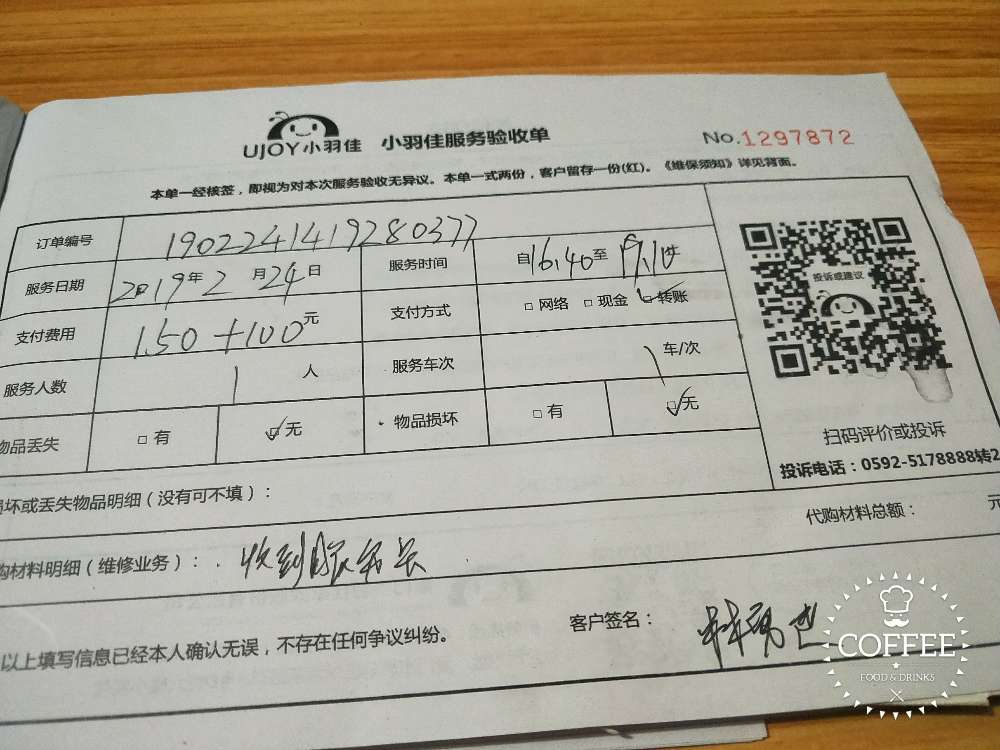 UJOY小羽佳 小羽佳服务验收单 No.1297872
本单一经核签，即视为对本次服务验收无异议。本单一式两份，客户留存一份(红)。《维保须知》详见背面。
订单编号 1902241419280377
服务日期 2019年2月24日 服务时间 自16:40至
支付费用 150+100元 支付方式 □网络 □现金 ☑转账
服务人数 1人 服务车次 1车/次
物品丢失 □有 ☑无 物品损坏 □有 ☑无
投诉或建议
扫码评价或投诉
投诉电话：0592-5178888转2
坏或丢失物品明细（没有可不填）：
代购材料总额： 元
购材料明细（维修业务）： 收到
以上填写信息已经本人确认无误，不存在任何争议纠纷。
客户签名：
COFFEE
FOOD & DRINKS